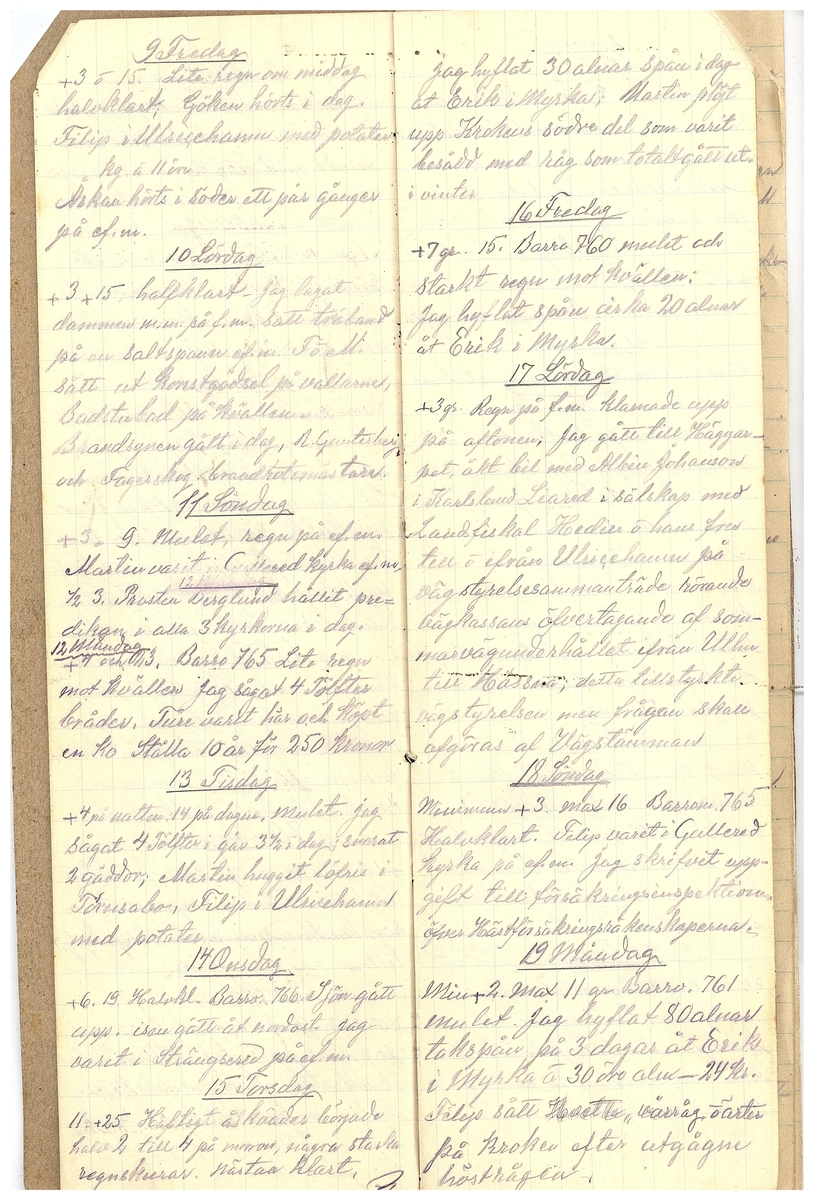 9 Fredag
+3 o 15. Lite regn om middag
halvklart, Göken hörts i dag.
Filip i Ulricehamn med potates
kg. á 11 öre
Åskan hörts i söder ett par gånger
på ef.m.
10 Lördag
+3 +15, halfklart. jag lagat
dammen m.m. på f.m. satt träband
på en saltspann ef.m. F o M.
sått ut Konstgödsel på vallarna,
Badstubad på kvällen.
Brandsynen gått i dag, R. Gunterberg
och Fagerskog brandrotemästare.
11 Söndag
+3 - 9. Mulet, regn på ef.m.
Martin varit i Gullered kyrka ef.m.
12 Måndag
½ 3. Prosten Berglund hållit pre=
dikan i alla 3 kyrkorna i dag.
12 Måndag
+4 och 13. Barro 765 Lite regn
mot kvällen jag sågat 4 Tölfter
bräder. Ture varit här och köpt
en ko Ställa 10 år för 250 kronor
13 Tisdag
+4 på natten. 14 på dagen, mulet. jag
sågat 4 Tölfter i går 3½ i dag; snarat
2 gäddor; Martin hugget löfris i
Törnsabo, Filip i Ulricehamn
med potates
14 Onsdag
+6. 19 Halvkl. Barro. 766. Sjön gått
upp. isen gått åt nordost. jag
varit i Strängsered på ef.m.
15 Torsdag
11 - +25 Häftigt åskväder började
halv 2 till 4 på morron, några starka
regnskurar. Nästan klart,
Jag hyflat 30 alnar spån i dag
åt Erik i Myska; Martin plöjt
upp Krokens södre del som varit
besådd med råg som totalt gått ut
i vinter
16 Fredag
+7 gr. 15. Barro 760 mulet och
starkt regn mot kvällen;
Jag hyflat spån cirka 20 alnar
åt Erik i Myska.
17 Lördag
+3 gr. Regn på f.m. klarnade upp
på aftonen; Jag gått till Häggar-
pet, åkt bil med Albin Johanson
i Karlslund Liared i sälskap med
Landfiskal Hedin o hans fru
till o ifrån Ulricehamn på
vägstyrelsesammanträde rörande
vägkassans öfvertagande af som-
marvägunderhållet ifrån Ulhn
till Hössna; detta tillstyrkte
vägstyrelsen men frågan skall
afgöras af Vägstämman
18 Söndag
Minimum +3. max 16 Barrom. 765
Halvklart. Filip varit i Gullered
kyrka på ef.m. Jag skrifvit upp-
gift till försäkringsinspektion
öfver Hästförsäkringsräkenskaperna.
19 Måndag
Min +2. Max 11 gr Barro. 761
mulet. Jag hyflat 80 alnar
takspån på 3 dagar åt Erik
i Myska á 30 öre aln — 24 kr.
Filip sått vårråg o ärter
på kroken efter utgågne
höstrågen.